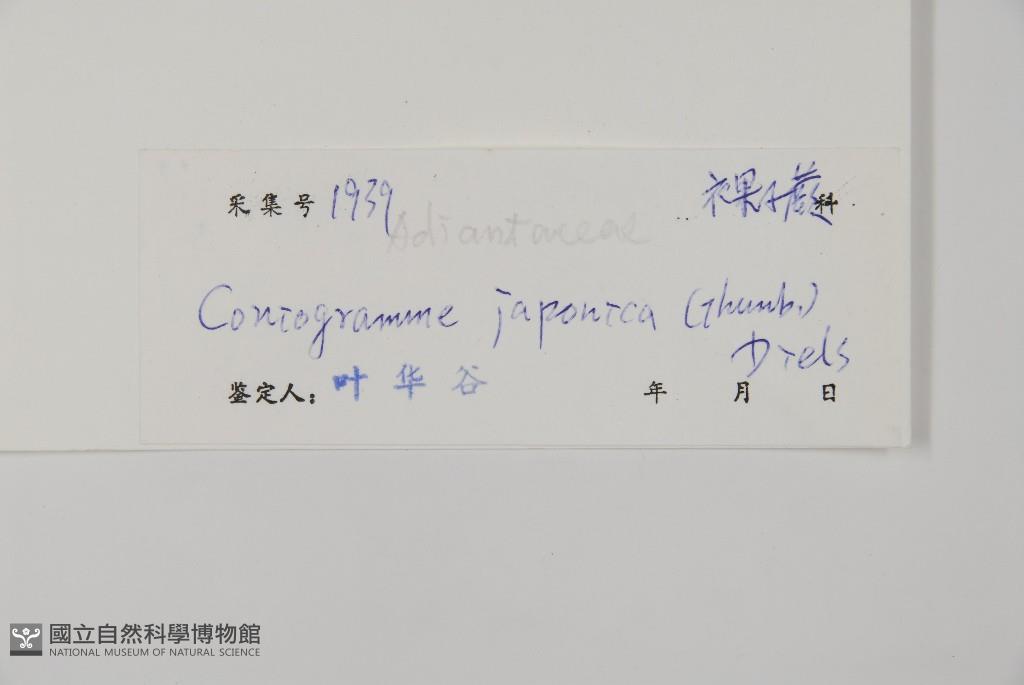 采集号 1939 裸子蕨科
Adiantaceae
Coniogramme japonica (Thunb.)
Diels
鉴定人：叶华谷 年 月 日
國立自然科學博物館
NATIONAL MUSEUM OF NATURAL SCIENCE